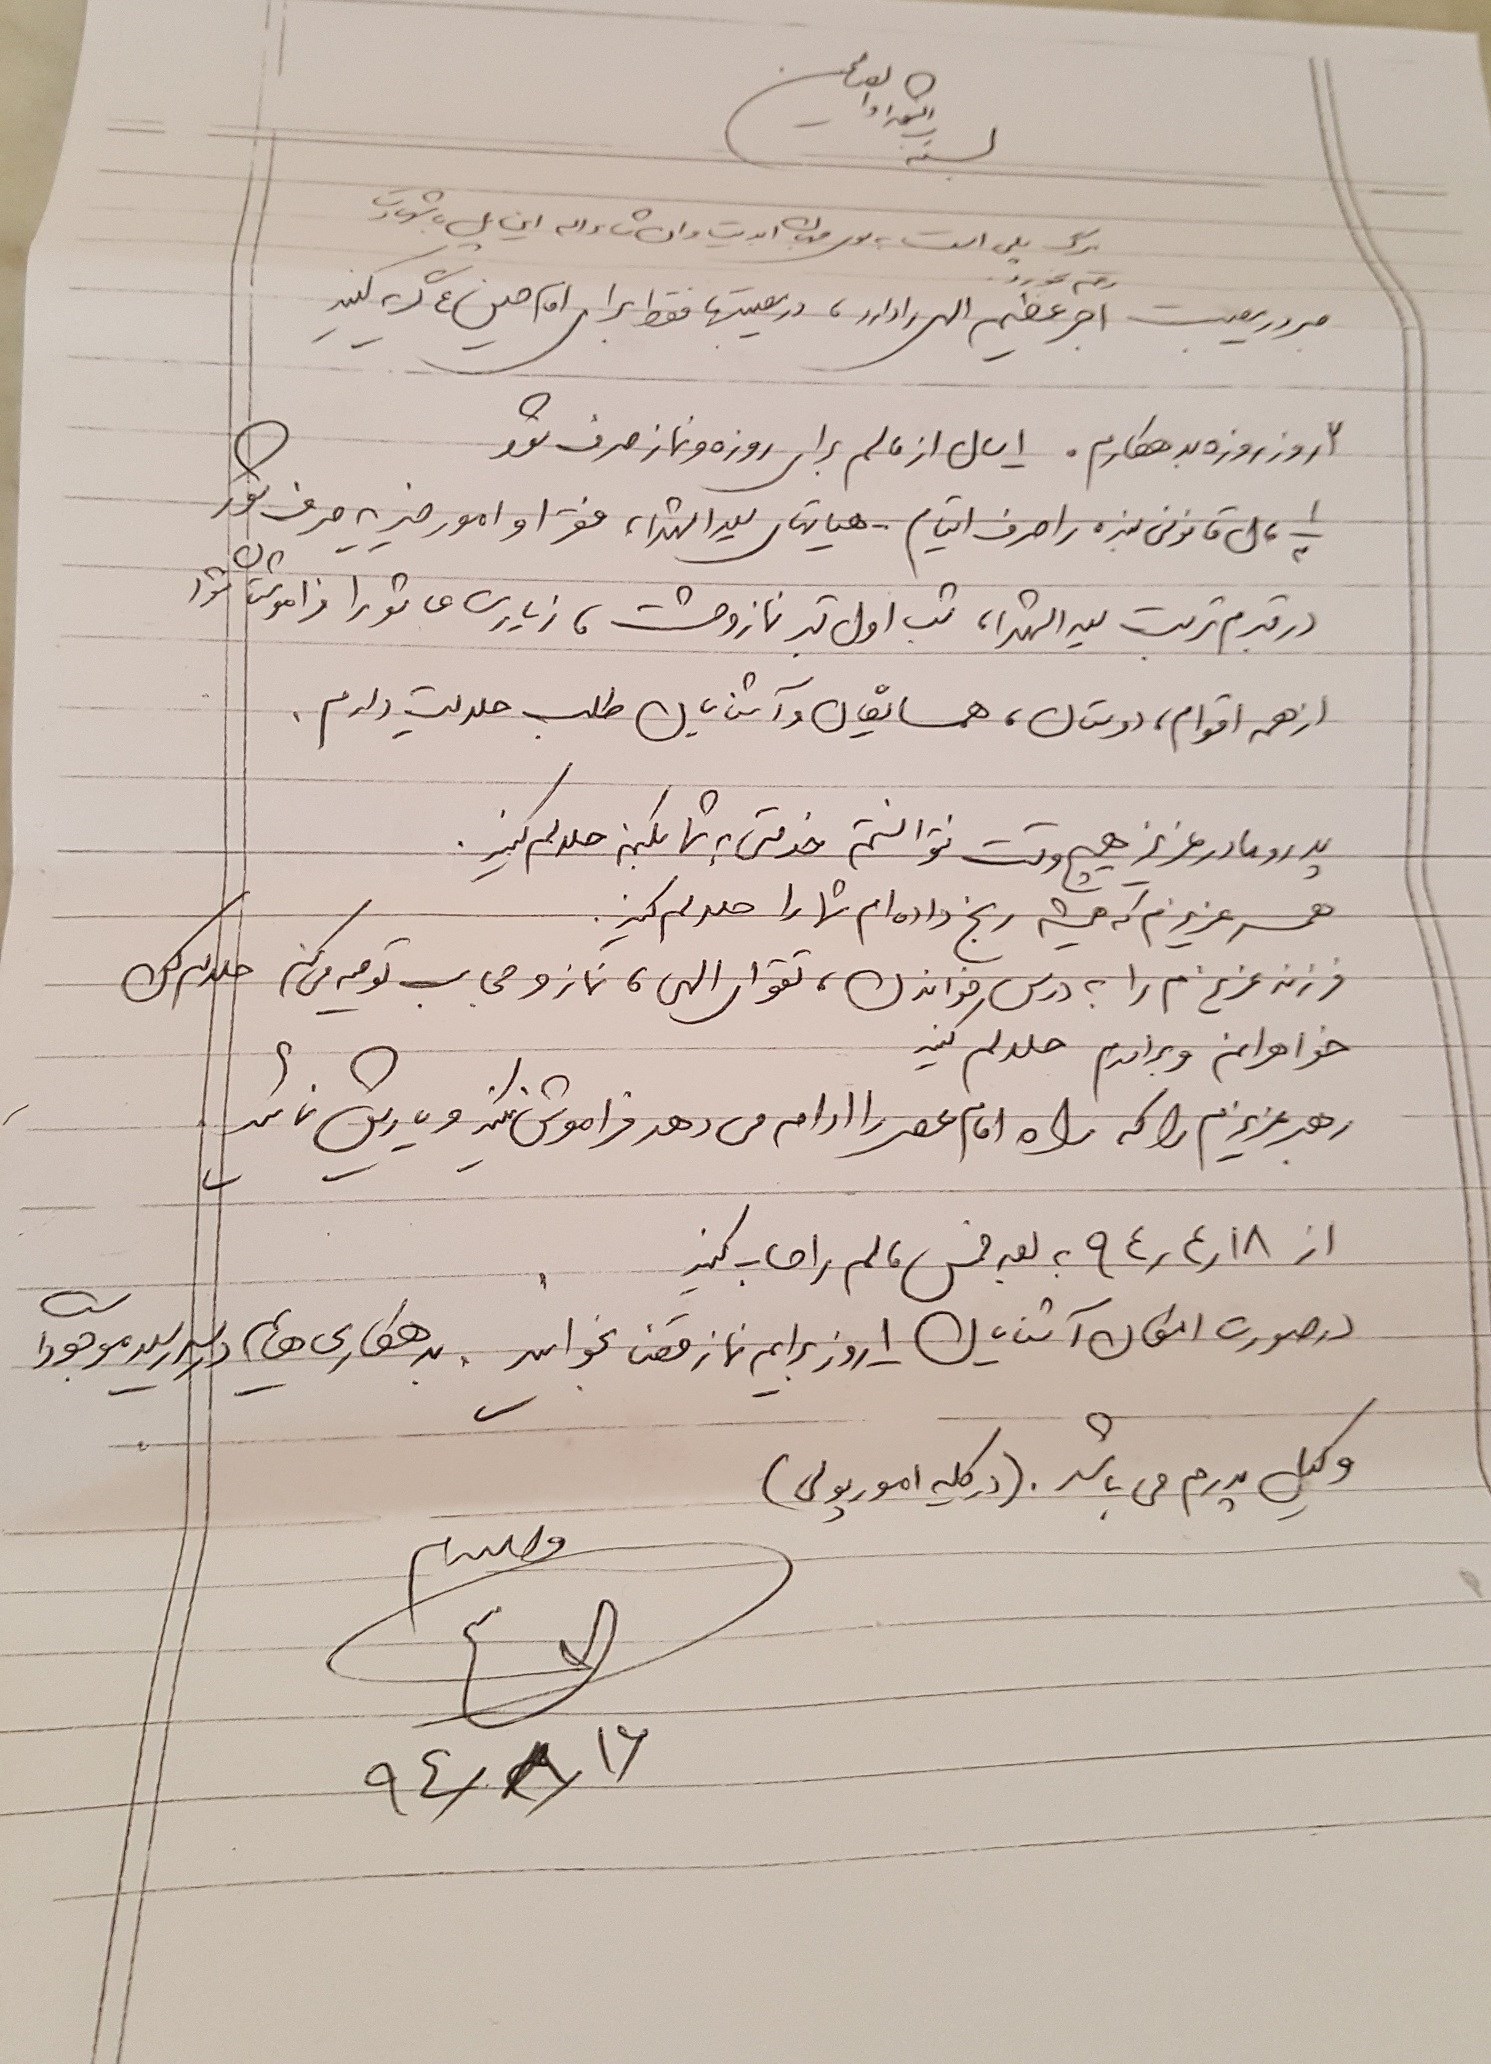 بسم رب الشهدا والصالحین
مرگ پلی است به سوی جهان ابدیت وان شاءاله این پل با شهادت
رقم بخورد.
صبر در مصیبت اجر عظیم الهی را دارد، در مصیبتها فقط برای امام حسین ع گریه کنید
۲ روز روزه بدهکارم. ۱ سال از مالم برای روزه و نماز صرف شود
۱/۳ مال قانونی بنده را صرف ایتام - هیاتهای سیدالشهدا، فقرا و امور خیریه صرف شود
در قبرم تربت سیدالشهدا، شب اول قبر نماز وحشت، زیارت عاشورا فراموش نشود
از همه اقوام، دوستان، همسایگان و آشنایان طلب حلالیت دارم.
پدر و مادر عزیز هیچ وقت نتوانستم خدمتی به شما بکنم حلالم کنید.
همسر عزیزم که همیشه رنج داده ام شما را حلالم کنید.
فرزند عزیزم را به درس خواندن، تقوای الهی، نماز و حجاب توصیه می کنم حلالم کن
خواهرانم و برادرم حلالم کنید
رهبر عزیزم را که راه امام عصر را ادامه می دهد فراموش نکنید و یاریش نمائید.
از ۹۴٫۴٫۱۸ به بعد خمس مالم را حساب کنید
درصورت امکان آشنایان ۱ روز برایم نماز قضا بخوانید. بدهکاری هایم در سررسید موجود است
وکیل پدرم می باشد. (در کلیه امور پولی)
والسلام
۹۴٫۸٫۱۶